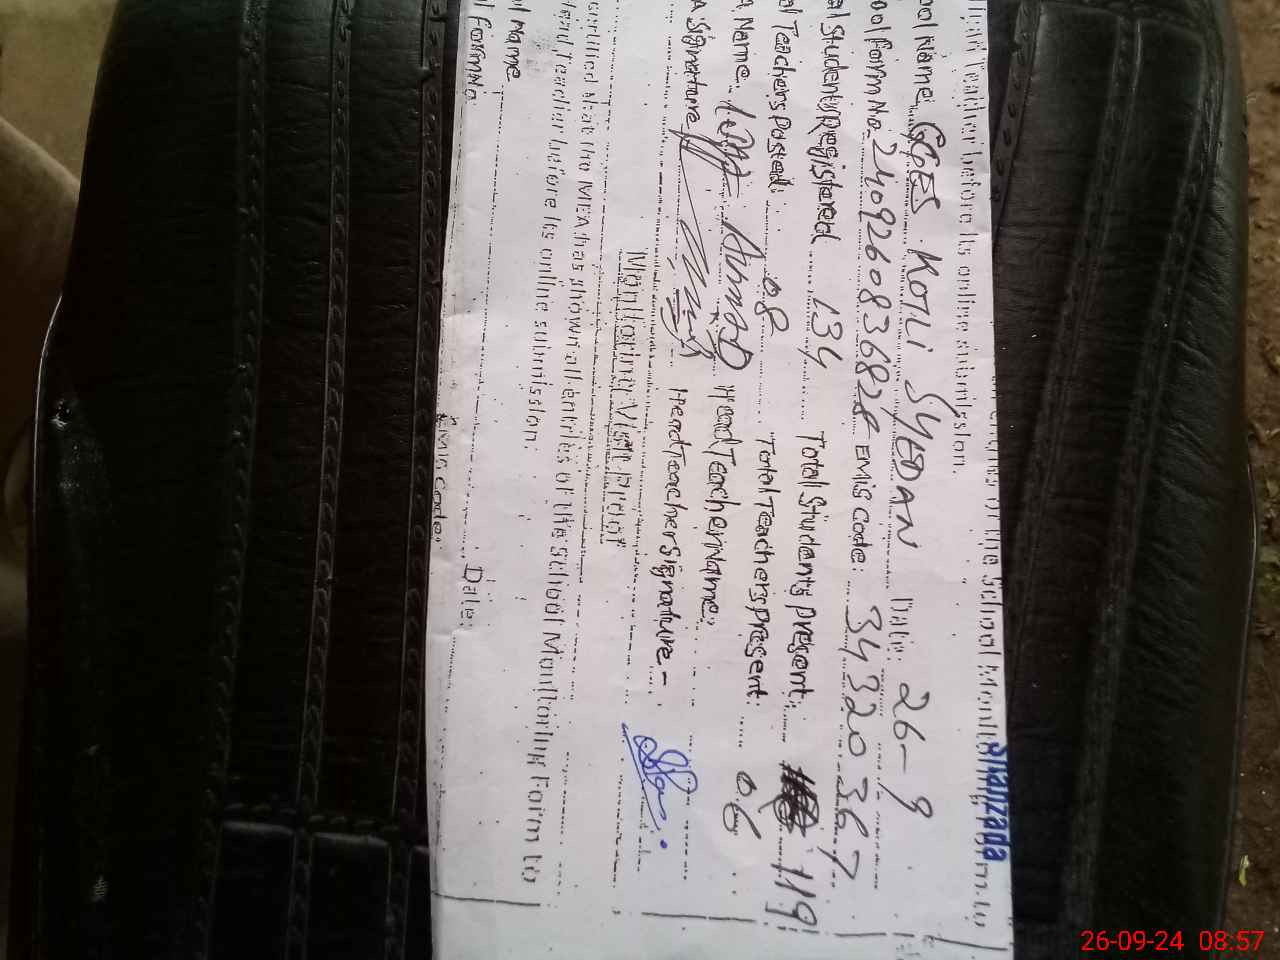 Teacher before its online submission.
ool Name. GGES KOTLI SYEDAN Date: 26-9
ool Form No. 2409260836828 EMIS Code: 34320367
al Students Registered 134 Total Students present: 119
al Teachers Posted: 08 Total Teachers present: 06
A Name. Ahmad Head Teacher Name:
A Signature Head Teacher Signature -
Monitoring Visit Proof
certified that the MEA has shown all entries of the School Monitoring Form to
Head Teacher before its online submission.
ol Name
ol Form No EMIS Code: Date:
Shahzada
26-09-24 08:57